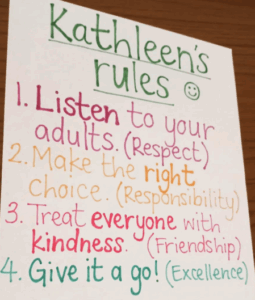 Kathleen's
rules ☺
1. Listen to your
adults. (Respect)
2. Make the right
choice. (Responsibility)
3. Treat everyone with
kindness. (Friendship)
4. Give it a go! (Excellence)